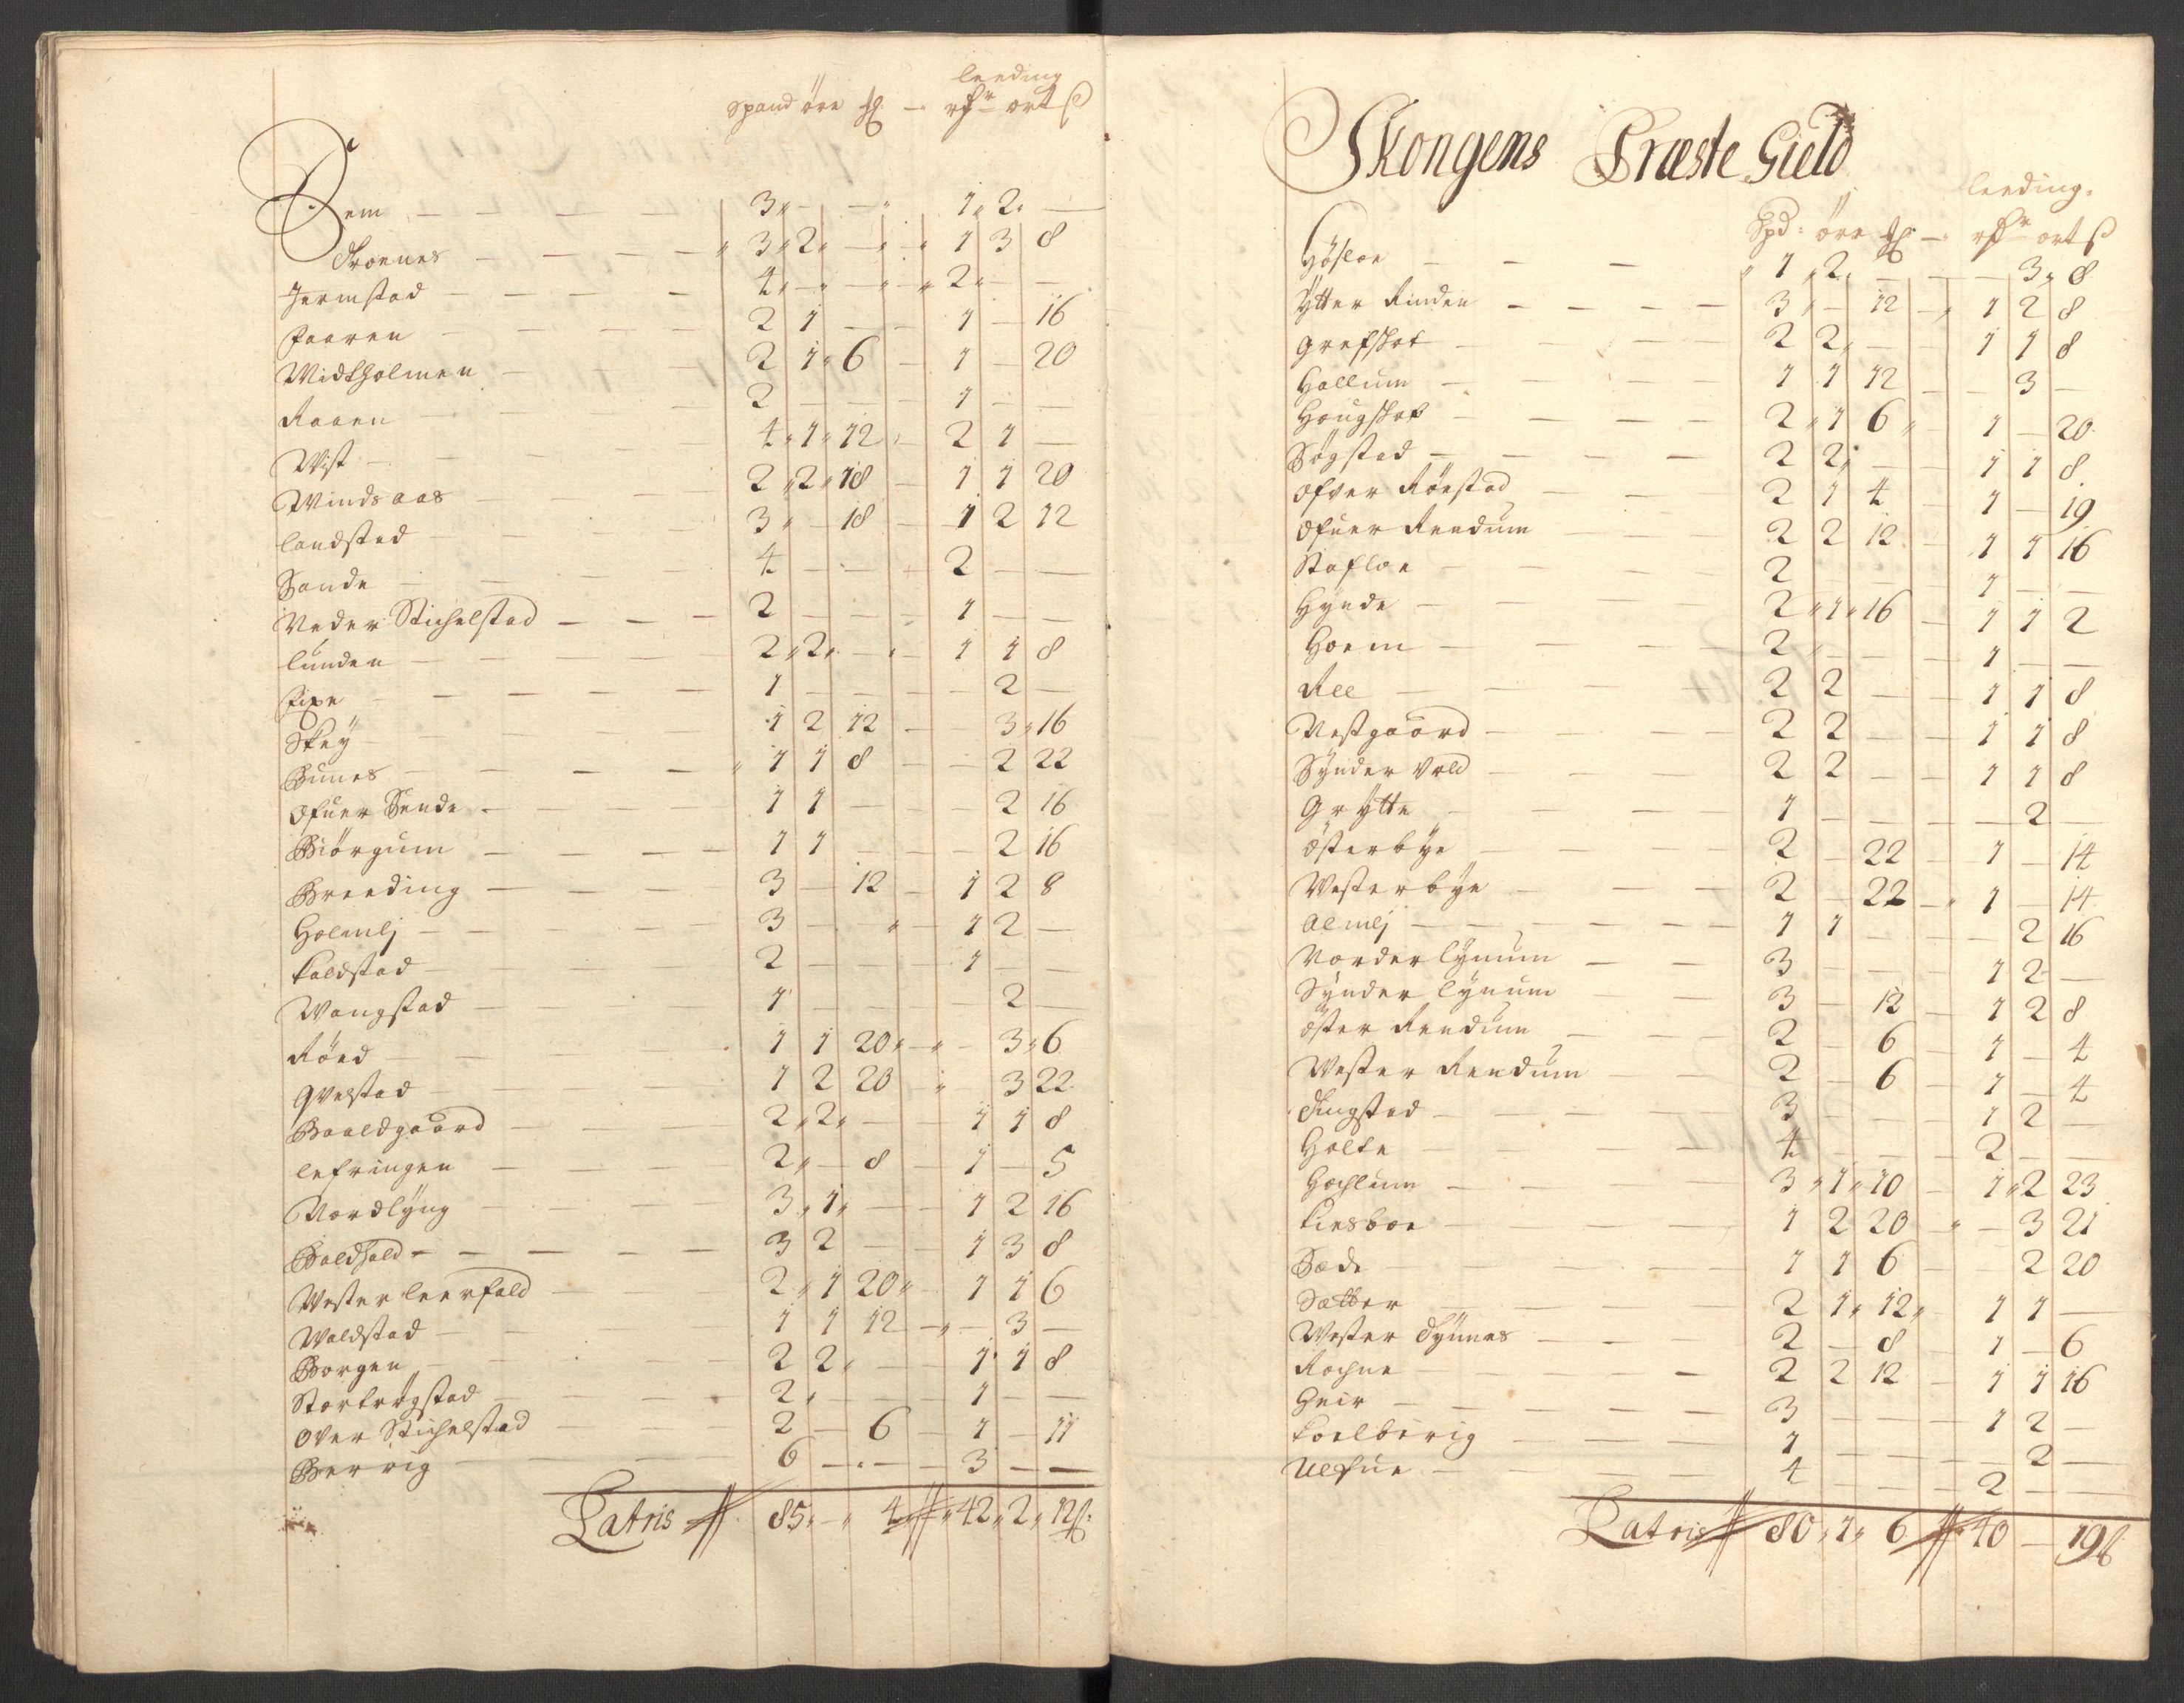 leeding
Spand öre — ort
Bem — 3 — 1 2 —
Troenes — 3 2 — 1 3 8
Jermstad — 4 — 2 —
Faaren — 2 1 — 1 — 16
Midtholmen — 2 1 6 — 1 — 20
Raaen — 2 — 1 —
Wist — 4 1 12 2 1 —
Windsaas — 2 2 18 — 1 1 20
landstad — 3 — 18 — 1 2 12
Sande — 4 — 2 —
Neder Stichelstad — 2 — 1 —
lunden — 2 2 — 1 1 8
— 1 — 2 —
Skey — 1 2 12 — 3 16
Bunes — 1 1 8 — 2 22
Ofuer Sende — 1 1 — 2 16
Biörgum — 1 1 — 2 16
Breeding — 3 — 12 — 1 2 8
Holmlj — 3 — 1 2 —
Faldstad — 2 — 1 —
Wangstad — 1 — 2 —
Röed — 1 1 20 — 3 6
Qvelstad — 1 2 20 3 22
Baaldgaard — 2 2 — 1 1 8
lefringen — 2 — 8 — 1 — 5
Nordlyng — 3 1 — 1 2 16
Baldhald — 3 2 — 1 3 8
Wester leerfald — 2 1 20 1 1 6
Waldstad — 1 1 12 — 3 —
Borgen — 2 2 — 1 1 8
Stor — 2 — 1 —
Over Stichelstad — 2 — 6 — 1 — 11
Berrig — 6 — 3 —
Latris 85 — 4 42 2 12 ß
Skongens Præste Gield
leeding
Spd: öre — ort
Höyloe — 1 2 — 3 8
Ytter Rinden — 3 — 12 — 1 2 8
Grefskot — 2 2 — 1 1 8
Hallum — 1 1 12 — 3 —
Hougskot — 2 1 6 1 — 20
Sögstad — 2 2 — 1 1 8
Ofver Röestad — 2 1 4 1 — 19
Ofuer Reedum — 2 2 12 — 1 1 16
Stafloe — 2 — 1 —
Hynde — 2 1 16 — 1 1 2
Hoem — 2 — 1 —
Ree — 2 2 — 1 1 8
Nestgaard — 2 2 — 1 1 8
Synder Vold — 2 2 — 1 1 8
Grytte — 1 — 2 —
österbye — 2 — 22 — 1 — 14
Westerbye — 2 — 22 — 1 — 14
Almlj — 1 1 — 2 16
Norder lynum — 3 — 1 2 —
Synder lynum — 3 — 12 — 1 2 8
öster Reedum — 2 — 6 — 1 — 4
Wester Reedum — 2 — 6 — 1 — 4
Tingstad — 3 — 1 2 —
Holte — 4 — 2 —
Hochlum — 3 1 10 — 1 2 23
Kiesboe — 1 2 20 — 3 21
Sæde — 1 1 6 — 2 20
Sætter — 2 1 12 1 1 —
Wester — 2 — 8 — 1 — 6
Rochne — 2 2 12 — 1 1 16
Heir — 3 — 1 2 —
Koelberig — 1 — 2 —
Ulfue — 4 — 2 —
Latris 80 1 6 40 — 19 ß